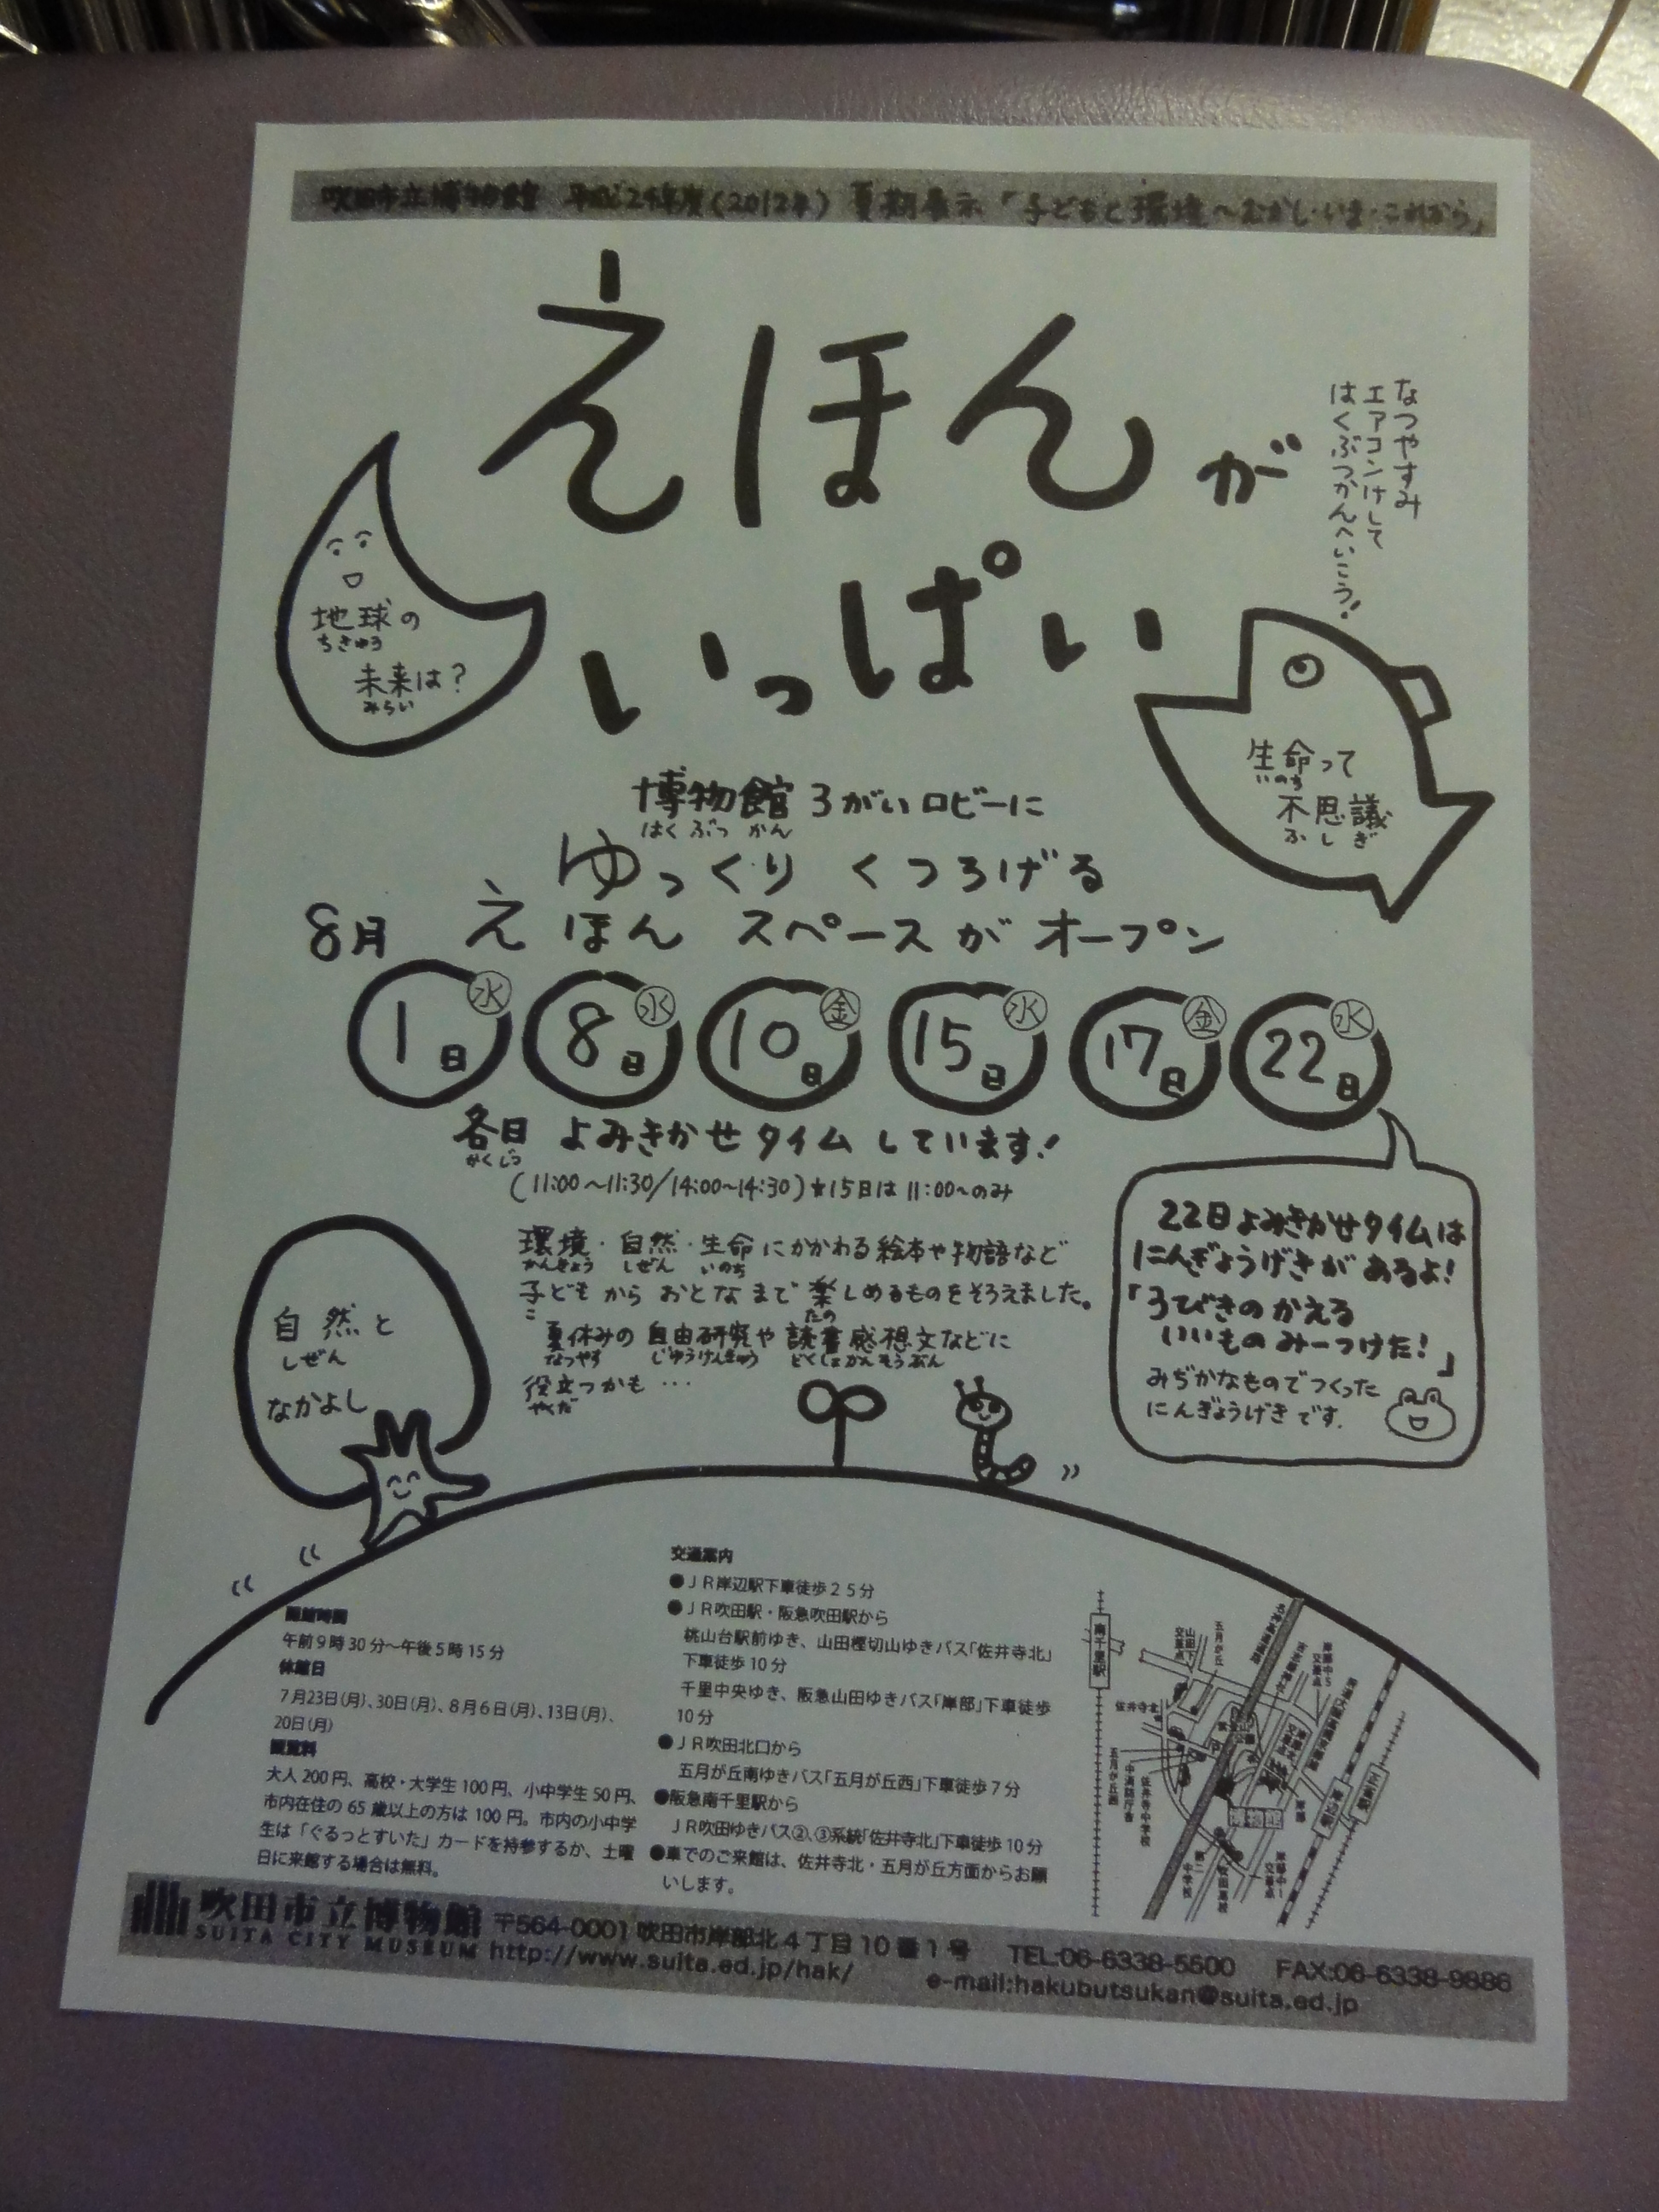 吹田市立博物館 平成24年度(2012年) 夏期展示「子どもと環境～むかし・いま・これから」
えほんが
いっぱい
なつやすみ
エアコンけして
はくぶつかんへいこう!
地球の
ちきゅう
未来は?
みらい
生命って
いのち
不思議
ふしぎ
博物館 3がいロビーに
はくぶつかん
ゆっくり くつろげる
8月 えほん スペースが オープン
1日 水
8日 水
10日 金
15日 水
17日 金
22日 水
各日 よみきかせタイム しています!
かくじつ
(11:00～11:30/14:00～14:30)★15日は11:00～のみ
環境・自然・生命にかかわる絵本や物語など
かんきょう しぜん いのち
子どもから おとなまで 楽しめるものをそろえました。
こ たの
夏休みの 自由研究や 読書感想文などに
なつやす じゆうけんきゅう どくしょかんそうぶん
役立つかも…
やくだ
22日よみきかせタイムは
にんぎょうげきが あるよ!
「3びきの かえる
いいもの みーつけた!」
みぢかなもので つくった
にんぎょうげき です.
自然と
しぜん
なかよし
開館時間
午前9時30分～午後5時15分
休館日
7月23日(月)、30日(月)、8月6日(月)、13日(月)、
20日(月)
観覧料
大人200円、高校・大学生100円、小中学生50円、
市内在住の65歳以上の方は100円。市内の小中学
生は「ぐるっとすいた」カードを持参するか、土曜
日に来館する場合は無料。
交通案内
●JR岸辺駅下車徒歩25分
●JR吹田駅・阪急吹田駅から
桃山台駅前ゆき、山田樫切山ゆきバス「佐井寺北」
下車徒歩10分
千里中央ゆき、阪急山田ゆきバス「岸部」下車徒歩
10分
●JR吹田北口から
五月が丘南ゆきバス「五月が丘西」下車徒歩7分
●阪急南千里駅から
JR吹田ゆきバス②、③系統「佐井寺北」下車徒歩10分
●車でのご来館は、佐井寺北・五月が丘方面からお願
いします。
南千里駅
山田下
交差点
五月が丘
佐井寺北
五月が丘西
佐井寺中学校
博物館
第二
中学校
吹田市立博物館
SUITA CITY MUSEUM
〒564-0001 吹田市岸部北4丁目10番1号 TEL:06-6338-5500 FAX:06-6338-9886
http://www.suita.ed.jp/hak/ e-mail:hakubutsukan@suita.ed.jp